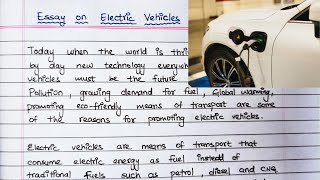 Essay on Electric Vehicles
Today when the world is thri
by day new technology everywh
vehicles must be the future
Pollution, growing demand for fuel, Global warming,
promoting eco-friendly means of transport are some
of the reasons for promoting electric vehicles.
Electric vehicles are means of transport that
consume electric energy as fuel instead of
traditional fuels such as petrol, diesel and CNG.